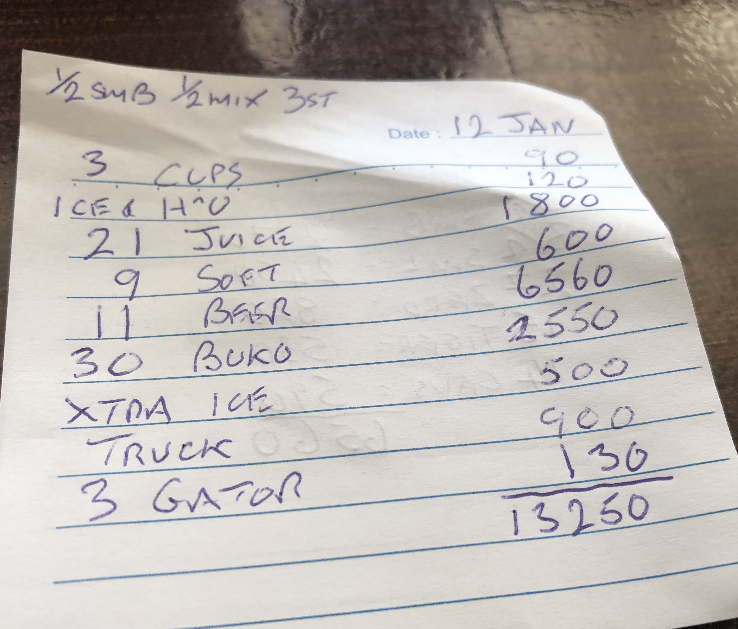 1/2 SMB 1/2 MIX 3ST
Date: 12 JAN
3 CUPS 90
ICE & H2O 120
21 JUICE 1800
9 SOFT 600
11 BEER 6560
30 BUKO 2550
XTRA ICE 500
TRUCK 900
3 GATOR 130
13250